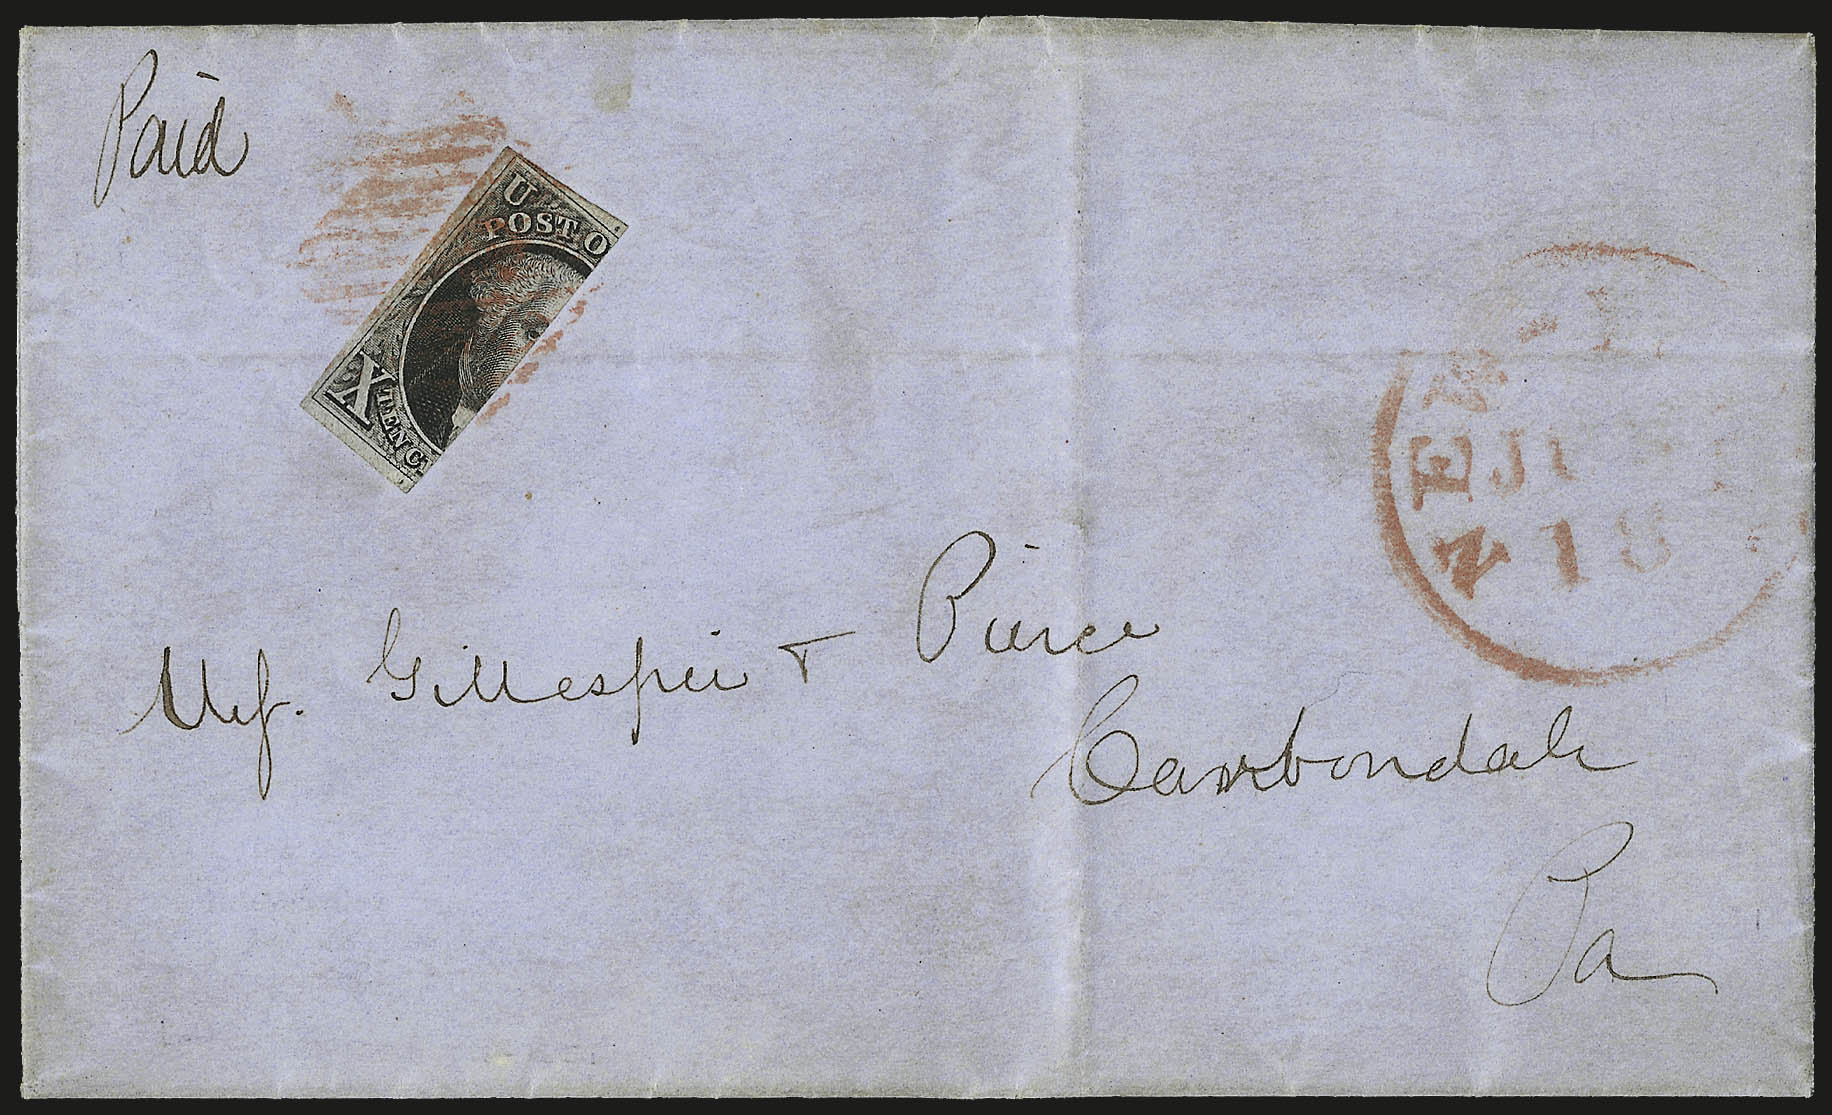 Paid
U
POST O
X TEN C
NEW
18
Mess. Gillespie & Pierce
Carbondale
Pa